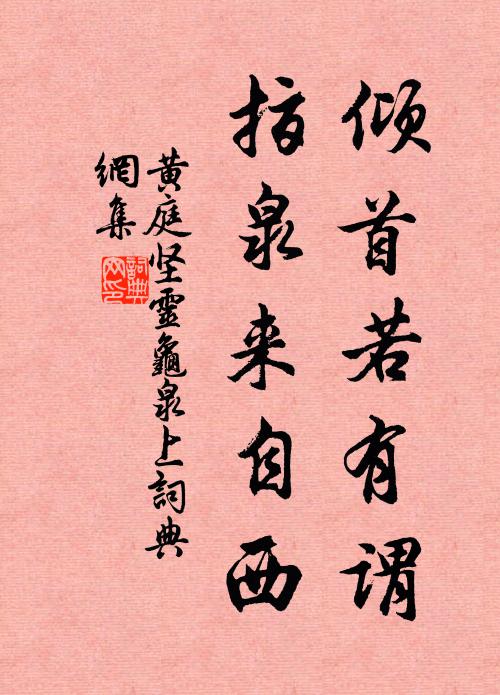 倾首若有谓
指泉来自西
黄庭坚靈龜泉上詞典
網集
詞典
网印